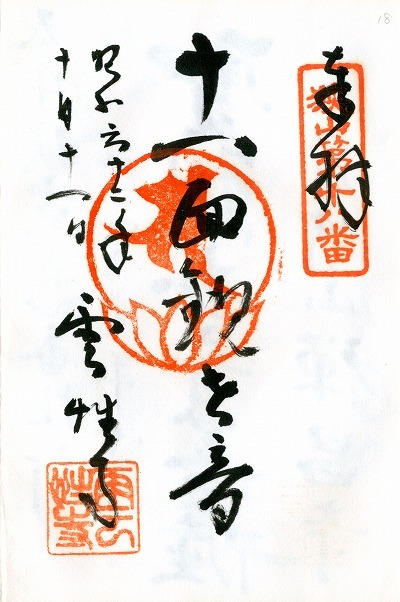 18
奉拝
狭山第十八番
十一面観世音
昭和六十二年
十月十一日
雲性寺